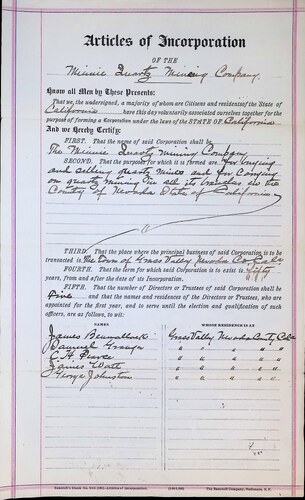 Articles of Incorporation
OF THE
Minnie Quartz Mining Company.
Know all Men by These Presents:
That we, the undersigned, a majority of whom are Citizens and residents of the State of
California have this day voluntarily associated ourselves together for the
purpose of forming a Corporation under the laws of the STATE OF California
And we Hereby Certify:
FIRST. That the name of said Corporation shall be
The Minnie Quartz Mining Company
SECOND. That the purpose for which it is formed are for buying
and selling Quartz Mines and for Carrying
on quartz mining in all its branches in the
County of Nevada State of California
THIRD. That the place where the principal business of said Corporation is to be
transacted is The Town of Grass Valley Nevada Co. Cala
FOURTH. That the term for which said Corporation is to exist is fifty
years, from and after the date of its Incorporation.
FIFTH. That the number of Directors or Trustees of said Corporation shall be
Five and that the names and residences of the Directors or Trustees, who are
appointed for the first year, and to serve until the election and qualification of such
officers, are as follows, to wit:
NAMES WHOSE RESIDENCE IS AT
James Grass Valley Nevada County Cala
Samuel Granger " " " " "
C. H. Pearce " " " " "
James Watt " " " " "
George Johnston " " " " "